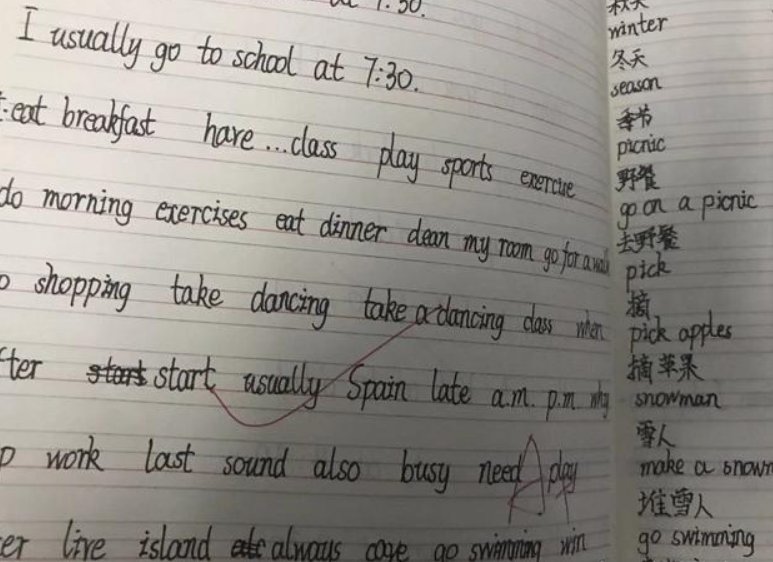 7:30.
I usually go to school at 7:30.
eat breakfast have...class play sports exercise
do morning exercises eat dinner clean my room go for a walk
shopping take dancing take a dancing class when
start usually Spain late a.m. p.m. why
work last sound also busy need play
live island always cave go swimming win
秋天
winter
冬天
season
季节
picnic
野餐
go on a picnic
去野餐
pick
摘
pick apples
摘苹果
snowman
雪人
make a snowm
堆雪人
go swimming